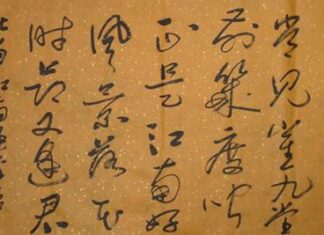 常见崔九堂
前幾度闻
正是江南好
風景落花
时节又逢君